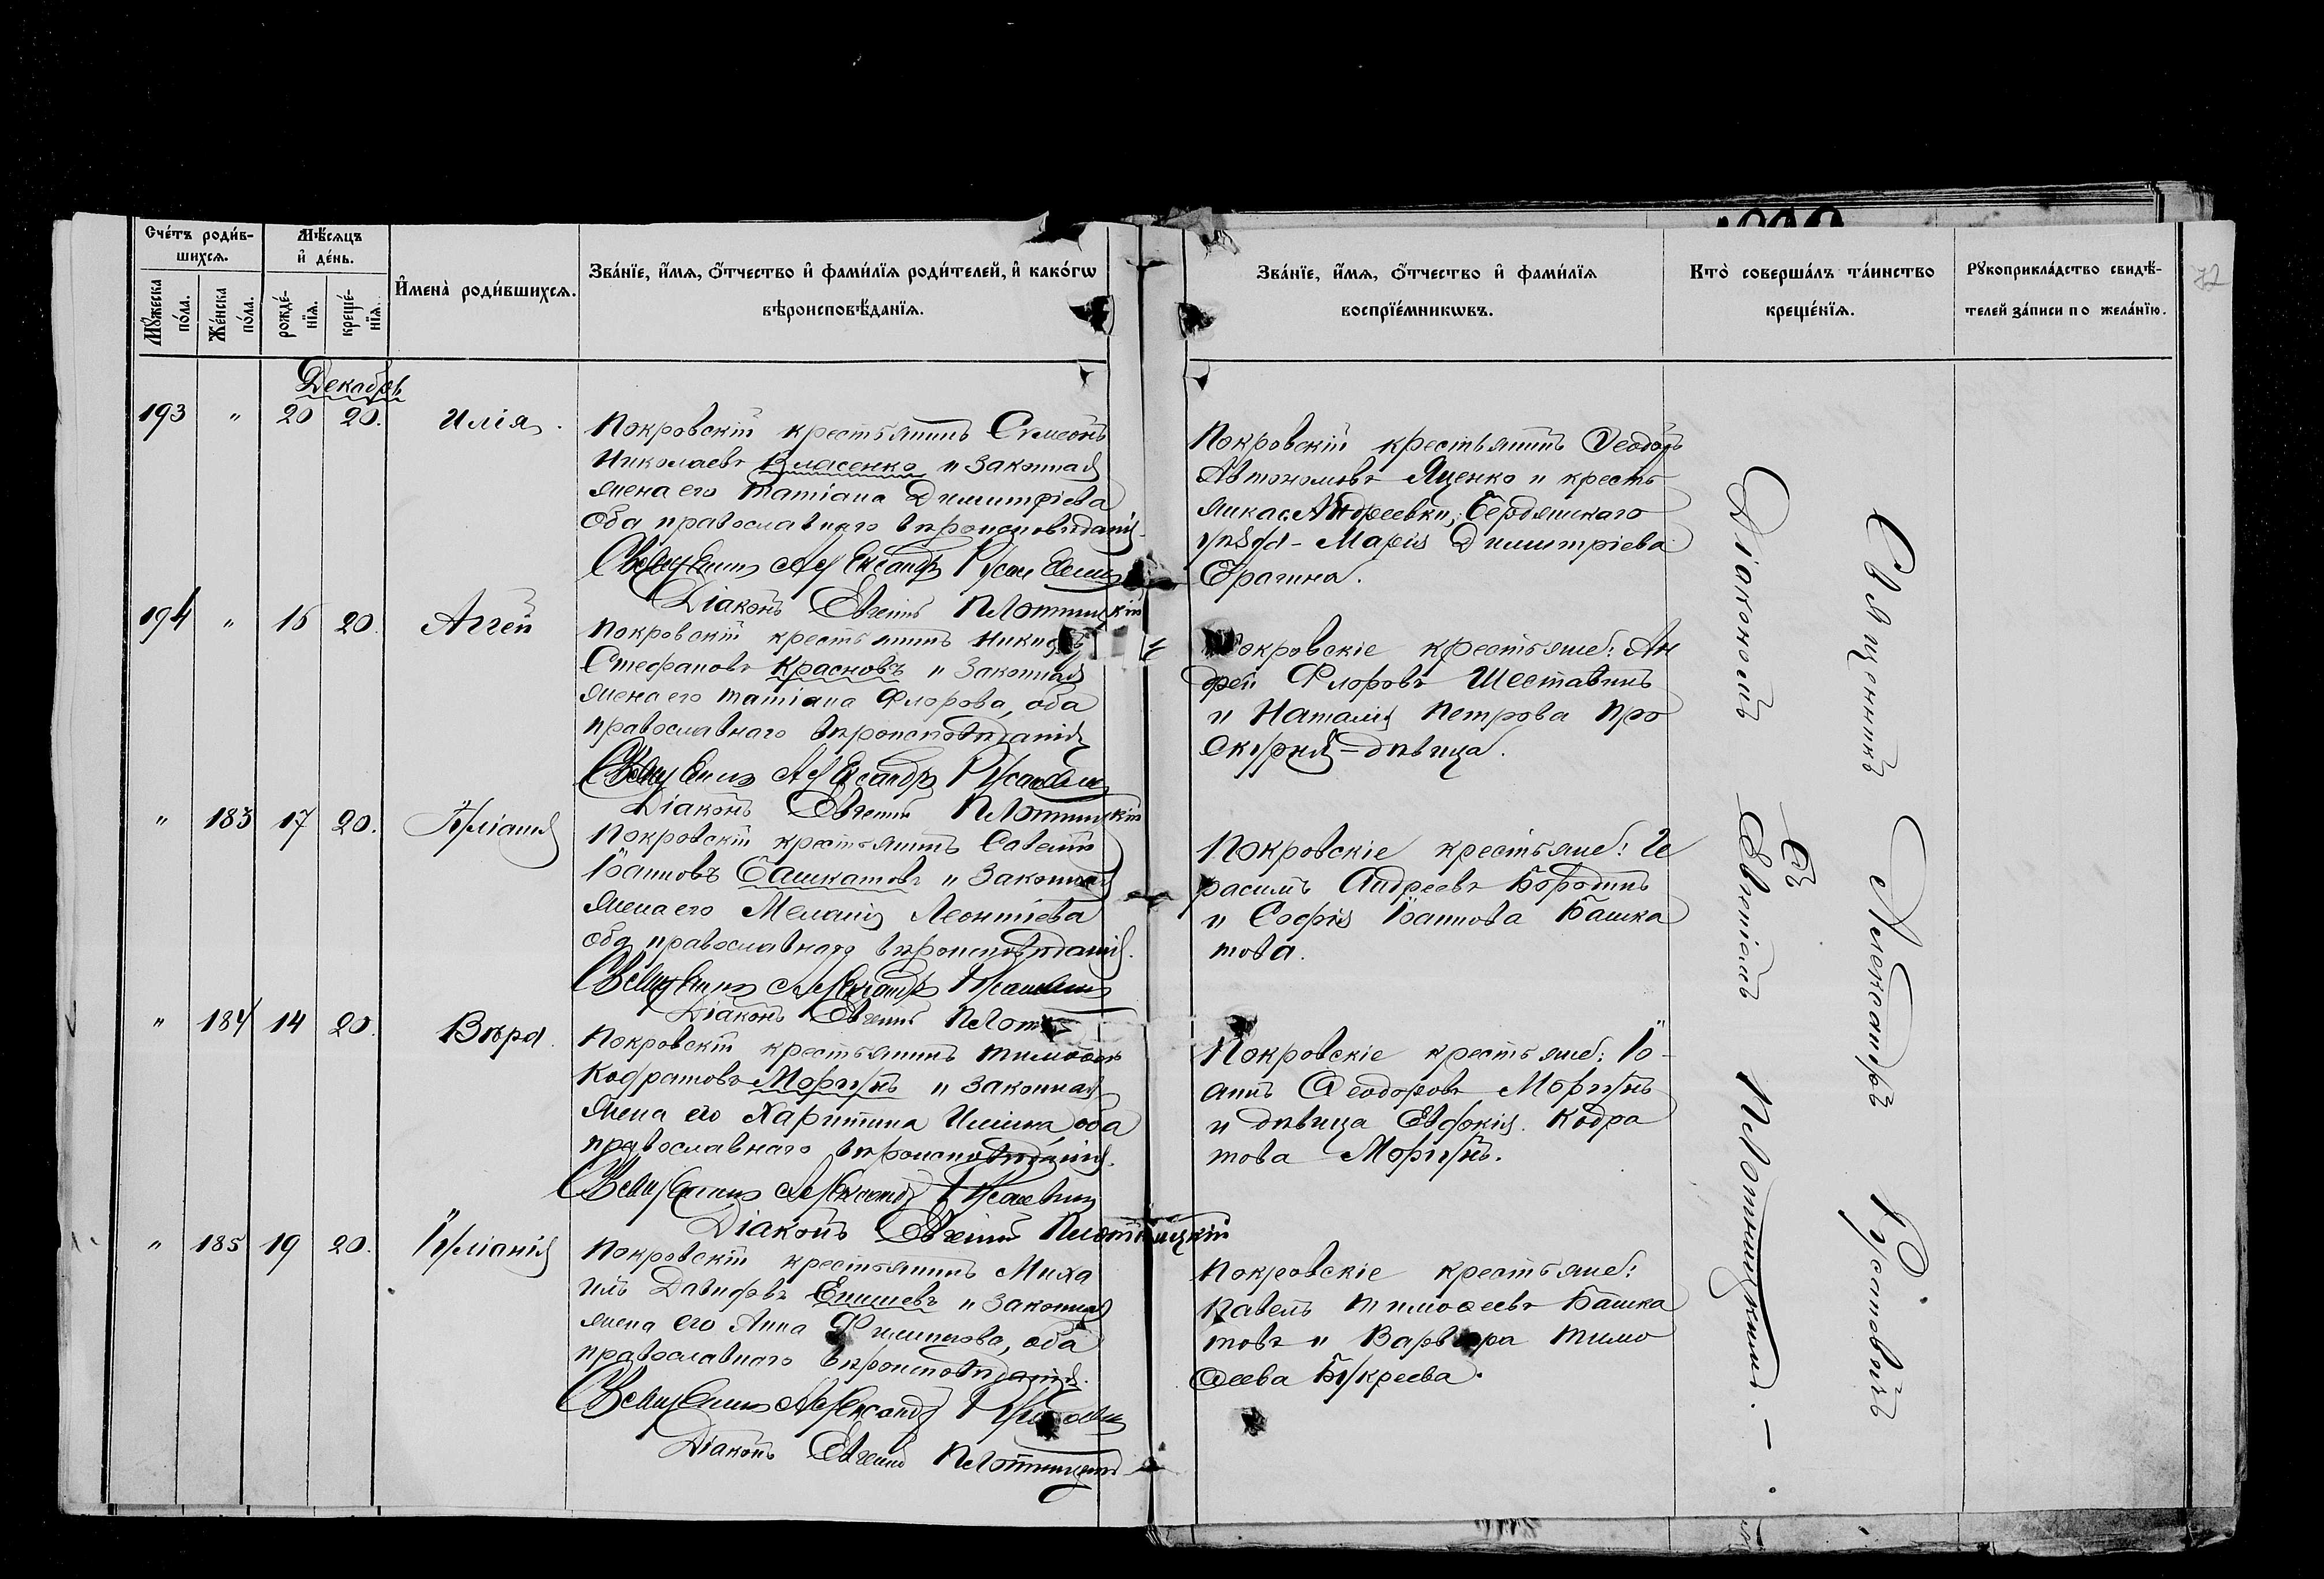 Сче́тъ роди́в-
шихсѧ.
Мѣ́сѧцъ
и҆ де́нь.
И҆мена̀ роди́вшихсѧ.
Зва́нїе, и҆́мѧ, ѻ҆́тчество и҆ фами́лїѧ роди́телей, и҆ како́гѡ
вѣроисповѣ́данїѧ.
Мꙋ́жеска
по́ла.
Же́нска
по́ла.
рожде́-
нїѧ.
креще́-
нїѧ.
Зва́нїе, и҆́мѧ, ѻ҆́тчество и҆ фами́лїѧ
воспрїе́мникѡвъ.
Кто̀ соверша́лъ та́инство
креще́нїѧ.
Рꙋкоприкла́дство свидѣ́-
телей за́писи по жела́нїю.
72
Декабрь
193 " 20 20. Илія.
Покровскій крестьянинъ Сѵмеонъ
Николаевъ Власенко и законная
жена его Татіана Димитріева
оба православнаго вѣроисповѣданія.
Священникъ Александръ Русановичъ
Діаконъ Евгеній Плотницкій
Покровскій крестьянинъ Ѳеодоръ
Автономовъ Яценко и кресть
янка с. Андреевки, Бердянскаго
уѣзда - Марія Димитріева
Брагина.
194 " 16 20. Аггей
Покровскій крестьянинъ
Стефановъ Красновъ и законная
жена его Татіана Флорова, оба
православнаго вѣроисповѣданія
Священникъ Александръ Русановичъ
Діаконъ Евгеній Плотницкій
Покровскіе крестьяне: Ан
дрей Флоровъ Шеставинъ
и Наталія Петрова Про
скурня - дѣвица.
" 183 17 20. Іуліанія
Покровскій крестьянинъ Савелій
Іоанновъ Башкатовъ и законная
жена его Меланія Леонтіева
оба православнаго вѣроисповѣданія.
Священникъ Александръ Русановичъ
Діаконъ Евгеній
Покровскіе крестьяне: Ге
расимъ Андреевъ Бородинъ
и Софія Іоаннова Башка
това.
" 184 14 20. Вѣра.
Покровскій крестьянинъ Тимоѳей
Кодратовъ Моргунъ и законная
жена его Харитина Ильина, оба
православнаго вѣроисповѣданія.
Священникъ Александръ Русановичъ
Діаконъ Евгеній Плотницкій
Покровскіе крестьяне: Іо-
аннъ Ѳеодоровъ Моргунъ
и дѣвица Евдокія Кодра
това Моргунъ.
" 185 19 20. Іуліанія
Покровскій крестьянинъ Миха
илъ Давидовъ Епишевъ и законная
жена его Анна Филиппова, оба
православнаго вѣроисповѣданія.
Священникъ Александръ Русановичъ
Діаконъ Евгеній Плотницкій
Покровскіе крестьяне:
Павелъ Тимоѳеевъ Башка
товъ и Варвара Тимо
ѳеева Букреева.
Священникъ Александръ Русановичъ
съ
Діакономъ Евгеніемъ Плотницкимъ. —